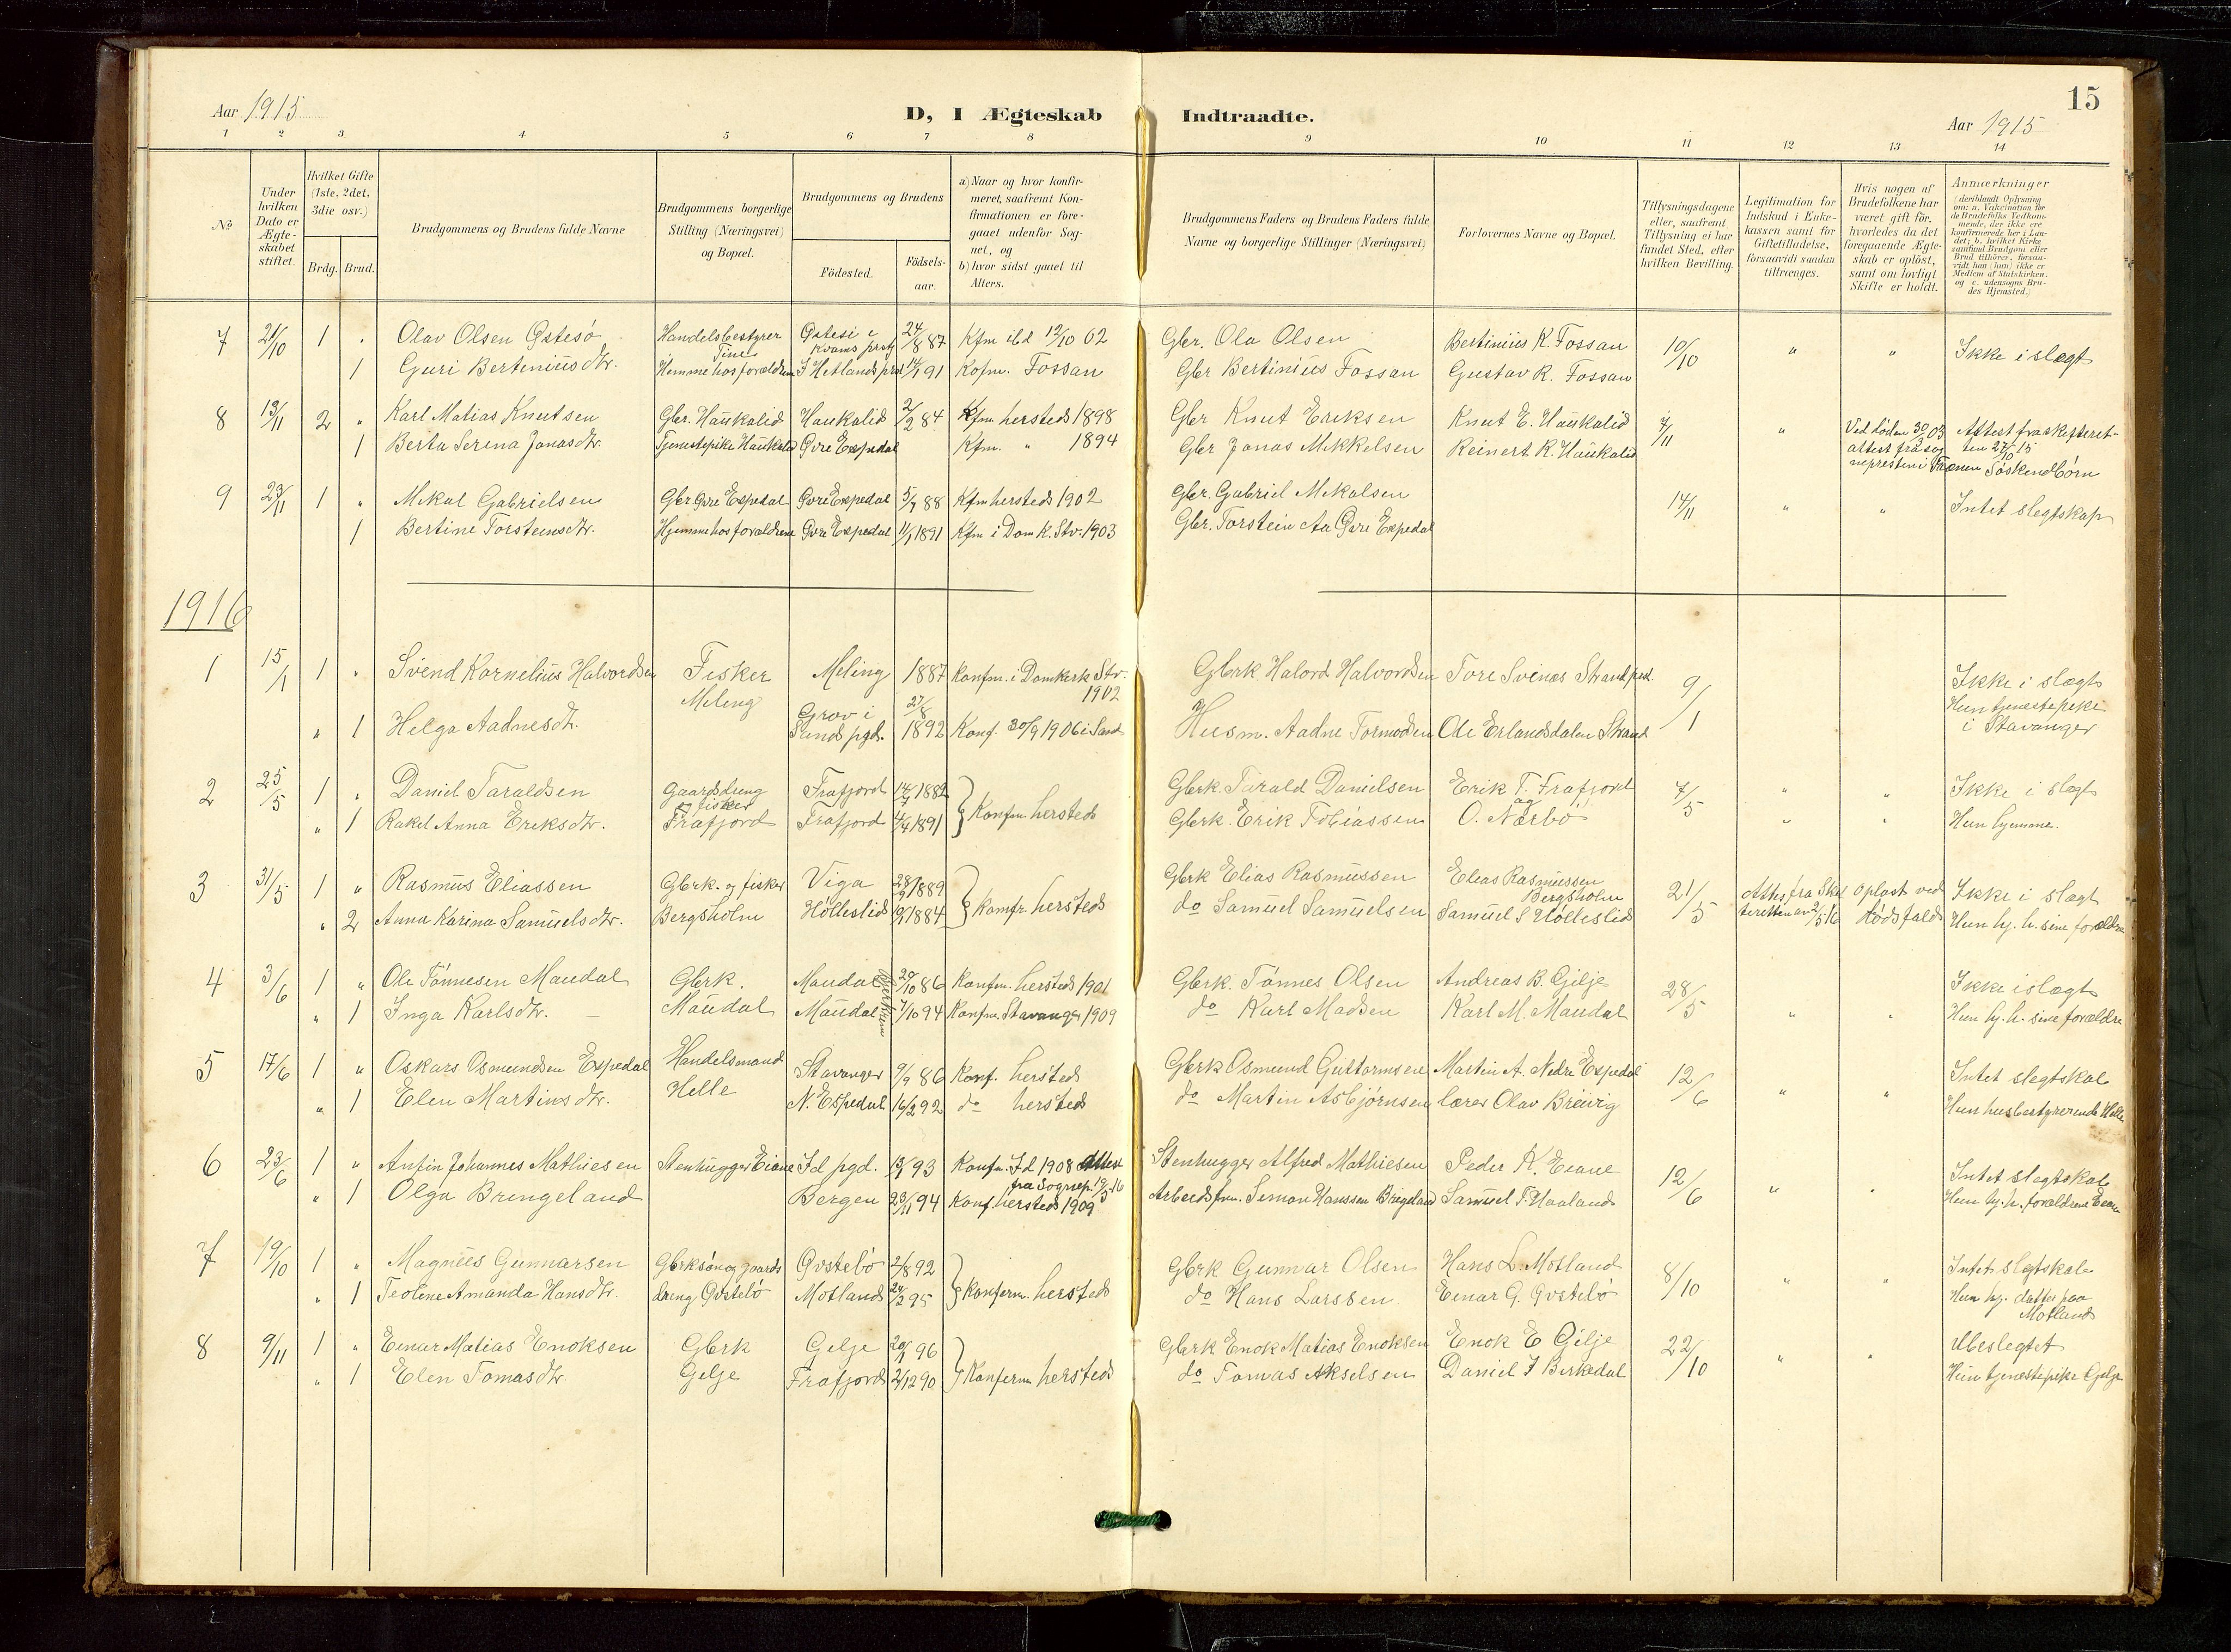 15
Aar 1915
D, I Ægteskab Indtraadte.
Aar 1915
1 2 3 4 5 6 7 8 9 10 11 12 13 14
No
Under hvilken Dato er Ægteskabet stiftet.
Hvilket Gifte (1ste, 2det, 3die osv.)
Brdg. Brud.
Brudgommens og Brudens fulde Navne
Brudgommens borgerlige Stilling (Næringsvei) og Bopæl.
Brudgommens og Brudens
Födested. Födselsaar.
a) Naar og hvor konfirmeret, saafremt Konfirmationen er foregaaet udenfor Sognet, og
b) hvor sidst gaaet til Alters.
Brudgommens Faders og Brudens Faders fulde Navne og borgerlige Stillinger (Næringsvei)
Forlovernes Navne og Bopæl.
Tillysningsdagene eller, saafremt Tillysning ei har fundet Sted, efter hvilken Bevilling.
Legitimation for Indskud i Enkekassen samt for Giftetilladelse, forsaavidt saadan tiltrænges.
Hvis nogen af Brudefolkene har været gift før, hvorledes da det foregaaende Ægteskab er oplöst, samt om lovligt Skifte er holdt.
Anmærkninger (deriblandt Oplysning om: a. Vakcination for de Brudefolks Vedkommende, der ikke ere konfirmerede her i Landet; b. hvilket Kirkesamfund Brudgom eller Brud tilhörer, forsaavidt han (hun) ikke er Medlem af Statskirken, og c. udensogns Brudes Hjemsted.)
7 21/10 1 " Olav Olsen Østesö Handelsbestyrer Tine Østesi i Kvams prstg 24/8 87 Kfm ibd 12/10 02 Gbr. Ola Olsen Bertinius K. Fossan 10/10 " " Ikke i slægt
1 Guri Berteniusdtr. Hjemme hos forældrene I Hetlands prst 91 Kofm. Fossan Gbr Bertinius Fossan Gustav R. Fossan
8 13/11 2 " Karl Matias Knutsen Gbr. Haukalid Haukalid 2/2 84 Kfm hersteds 1898 Gbr Knut Eriksen Knut E. Haukalid 7/11 " Ved döden 30/3 03 Attest fra skifteret-
1 Berta Serina Jonasdtr. Tjenestepike Haukalid Øvre Espedal Kfm. " 1894 Gbr Jonas Mikkelsen Reinert K. Haukalid attest fra sog ten 27/10 15
nepresten i Træmen Söskendbörn
9 23/11 1 " Mikal Gabrielsen Gbr Øvre Espedal Øvre Espedal 5/7 88 Kfm hersteds 1902 Gbr. Gabriel Mikalsen 14/11 " " Intet slegtskap
1 Bertine Torsteinsdtr. Hjemme hos forældrene Øvre Espedal 11/1 1891 Kfm i Dom K. Stv. 1903 Gbr. Torstein Aa Øvre Espedal
1916
1 15/1 1 " Svend Kornelius Halvordsen Fisker Meling 1887 Konfm. i Domkirk Stv. Gbrk Halord Halvordsen Tore Svines Strand pgd. 9/1 Ikke i slægt
Meling 27/8 1902 Hun tjenestepike
" 1 Helga Aadnesdtr. Grov i Sands pgd. 1892 Konf. 30/9 1906 i Sand Husm. Aadne Tormodsen Ole Erlandsdalen Strand i Stavanger
2 25/5 1 " Daniel Taraldsen Gaardsdreng og fisker Frafjord 14/7 1882 Konfm hersteds Gbrk Tarald Danielsen Erik T. Frafjord og 7/5 " " Ikke i slægt
" 1 Rakel Anna Eriksdtr. Frafjord Frafjord 4/4 1891 Gbrk. Erik Tobiassen O. Nærbö " " Hun hjemme.
3 31/5 1 " Rasmus Eliassen Gbrk. og fisker Viga 28/9 1889 Konfr. hersteds Gbrk Elias Rasmussen Elias Rasmussen Bergsholm 21/5 Attest fra Skif Oplöst ved Ikke i slægt
" 2 Anna Karina Samuelsdtr. Bergsholm Hölleslid 1884 do Samuel Samuelsen Samuel S Hölleslid teretten av 2/5 16 dödsfald Hun hj. h. sine forældre
4 3/6 1 " Ole Tönnesen Maudal Gbrk. Maudal 29/10 86 Konfm. hersteds 1901 Gbrk. Tönnes Olsen Andreas B. Gilje 28/5 Ikke i slægt
" 1 Inga Karlsdtr. Maudal Maudal 7/10 94 Konfm. Stavanger 1909 do Karl Madsen Karl M. Maudal " " Hun hj. h. sine forældre
5 17/6 1 " Oskars Osmundsen Espedal Handelsmand Stavanger 9/9 86 Konf. hersteds Gbrk Osmund Guttormsen Martin A. Nedre Espedal 12/6 Intet slegtskab
" 1 Elen Martinsdtr. Helle N. Espedal 16/2 92 do hersteds do Martin Asbjörnsen lærer Olav Breivig " " Hun husbestyrerinde Helle
6 23/6 1 " Anfin Johannes Mathiesen Stenhugger Eiane Id pgd. 93 Konfm. Id 1908 Attest Stenhugger Alfred Mathiesen Peder K. Eiane 12/6 Intet slegtskab
" 1 Olga Bringeland Bergen 23/11 94 fra Sognep. 19/5-16 Konf. hersteds 1909 Arbeidsfm. Simon Hanssen Bringeland Samuel T. Haaland " " Hun hj. h. forældrene Eiane
7 19/10 1 " Magnus Gunnarsen Gbrksön og gaards Øvstebö 2/8 92 Konferm. hersteds Gbrk Gunnar Olsen Hans L. Motland 8/10 " " Intet slegtskab
" 1 Teoline Amanda Hansdtr. dreng Øvstebö Motland 24/2 95 do Hans Larssen Einar G. Øvstebö Hun hj. datter paa Motland
8 9/11 1 " Einar Matias Enoksen Gbrk Gilje 20/1 96 Konferm hersteds Gbrk Enok Matias Enoksen Enok E Gilje 22/10 " " Ubeslegtet
" 1 Elen Tomasdtr. Gilje Frafjord 2/12 90 do Tomas Akselsen Daniel J Birkedal Hun tjenestepike Gilje